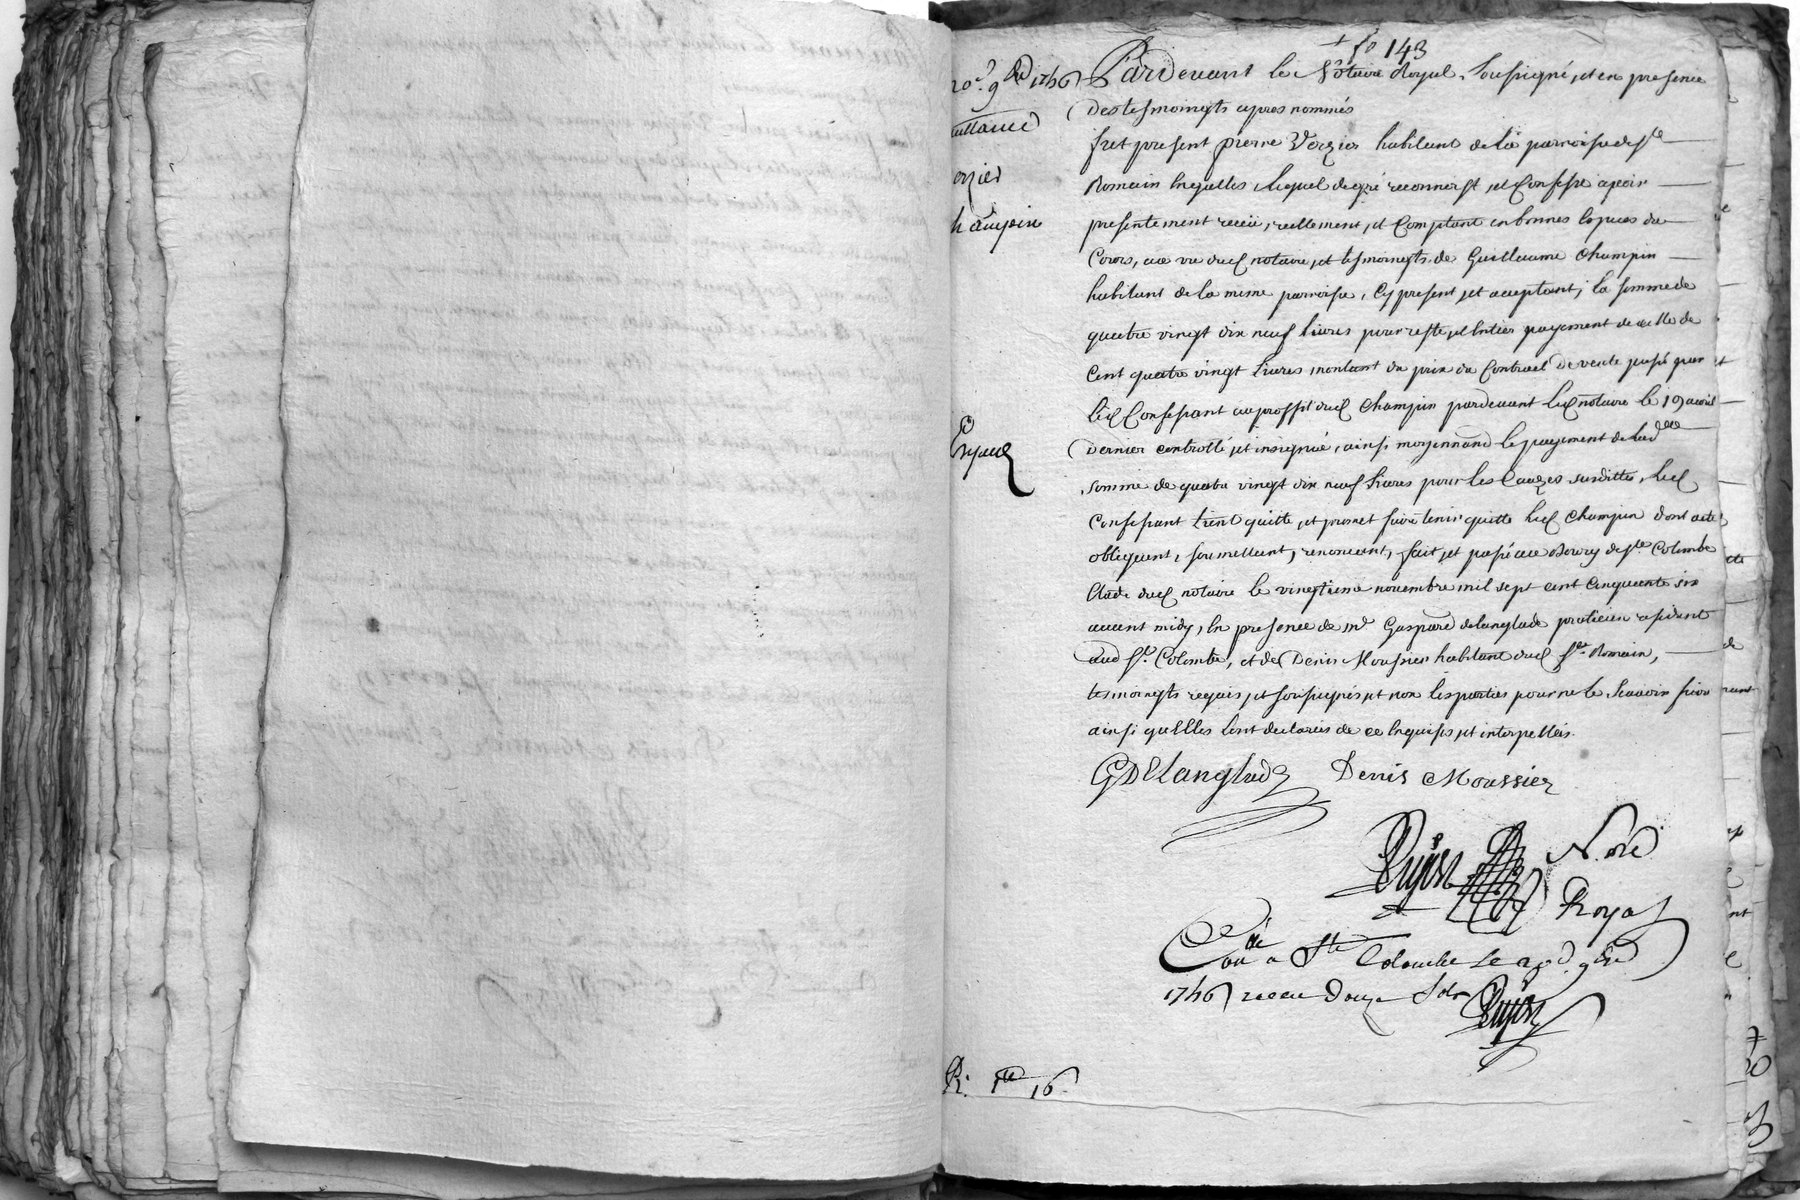 + fo 143
20e. 9bre 1756
Pardevant le Notaire Royal, soussigné, et en presence
des tesmoingts cy pres nommés
quittance
fut present pierre Verzier habitant de la parroisse de ste
erzier
Romain lequel de gré reconnoist, et Confesse avoir
hampin
presentement receu, reellement, et Comptant en bonnes Especes du
Cours, au vu dud notaire, et tesmoingts, de Guillaume Champin
habitant de la meme parroisse, Cy present, et acceptant, la somme de
quatre vingt dix neuf Livres pour reste, et Entier payement de celle de
Cent quatre vingt Livres, montant du prix du Contract De vente passé par
led Confessant au proffit dud Champin pardevant led notaire le 19 avril
Expedié
Dernier controllé, et insignué, ainsi moyennand le payement de lade
somme de quatre vingt dix neuf Livres pour les Causes susdittes, led
Confessant tient quitte, et promet faire tenir quitte led Champin dont acte
obligeant, soumettant, renonceant, fait, et passé au Bourg de ste Colombe
Etude dud notaire le vingtieme novembre mil sept cent cinquante six
avant midy, En presence de mr Gaspard delanglade praticien residant
aud ste Colombe, et de Denis Moussier habitant dud st Romain,
tesmoingts requis, et soussignés, et non les parties pour ne le scavoir faire
ainsi quElles lont declarés de ce Enquises, et interpellés.
GDElanglade Denis Moussier
Dujast Nore
Royal
Conlé a Ste Colombe le 20e. 9bre
1756 receu Douze sols Dujast
R. 1ere 16